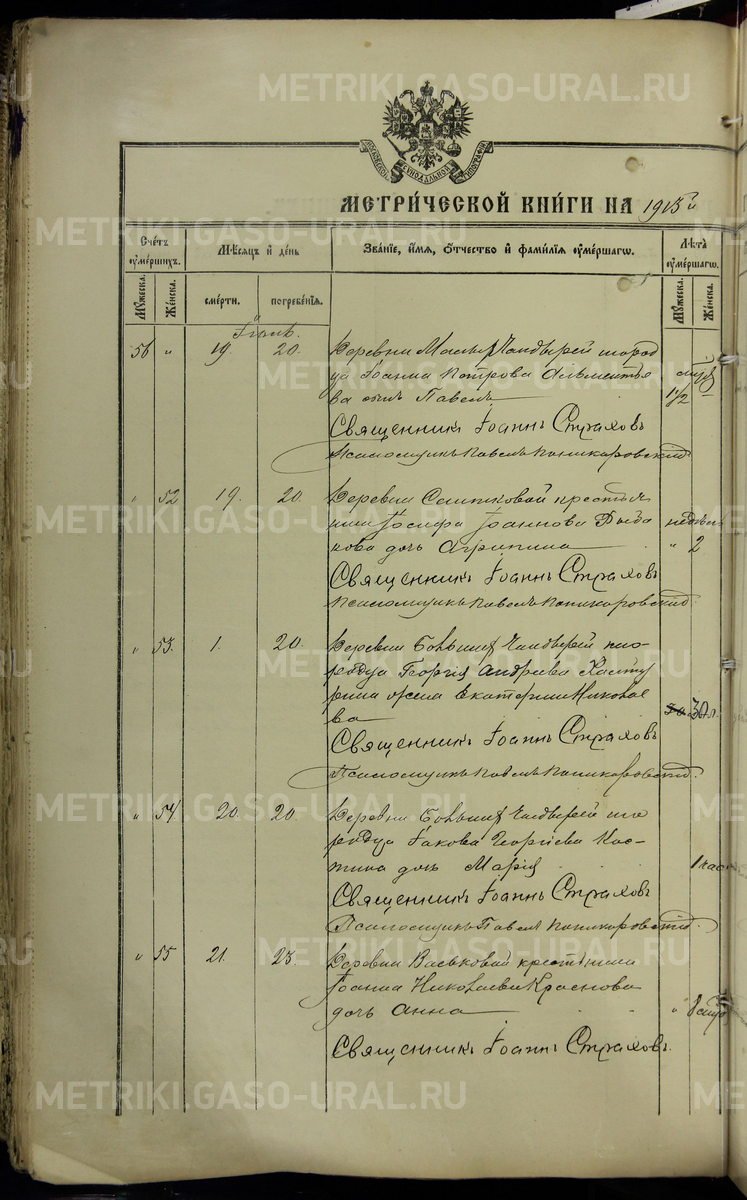 МОСКОВСКОЙ СѴНОДАЛЬНОЙ ТИПОГРАФІИ
МЕТРИ́ЧЕСКОЙ КНИ́ГИ НА 1915й
Сче́тъ ᲂу҆ме́ршихъ.
Мꙋ́жеска.
Же́нска.
Мѣ́сѧцъ и҆ де́нь
сме́рти.
погребе́нїѧ.
Зва́нїе, и҆́мѧ, Ѻ҆́тчество и҆ фами́лїѧ ᲂу҆ме́ршагѡ.
Лѣ́та ᲂу҆ме́ршагѡ.
Мꙋ́жеска.
Же́нска.
Іюль.
56 " 19. 20. Деревни Малых Чандырей инород
ца Іоанна Петрова Альментье
ва сынъ Павелъ 1½
Священникъ Іоаннъ Страховъ
Псаломщикъ Павелъ Поникаровскій
" 52 19. 20. Деревни крестья
нина Іосифа Іоаннова Рыба
кова дочь Агрипина недѣль " 2
Священникъ Іоаннъ Страховъ
Псаломщикъ Павелъ Поникаровскій
" 53. 1. 20. Деревни Большихъ Чандырей ино-
родца Георгія Андреева Халту
рина жена Екатерина Николае
ва 30 л.
Священникъ Іоаннъ Страховъ
Псаломщикъ Павелъ Поникаровскій.
" 54 20. 20. Деревни Большихъ Чандырей ино
родца Іакова Георгіева Кос-
тина дочь Марія 1 час
Священникъ Іоаннъ Страховъ
Псаломщикъ Павелъ Поникаровскій.
" 55 21. 23. Деревни Васьковой крестьянина
Іоанна Николаева Краснова
дочь Анна " 8
Священникъ Іоаннъ Страховъ
METRIKI.GASO-URAL.RU